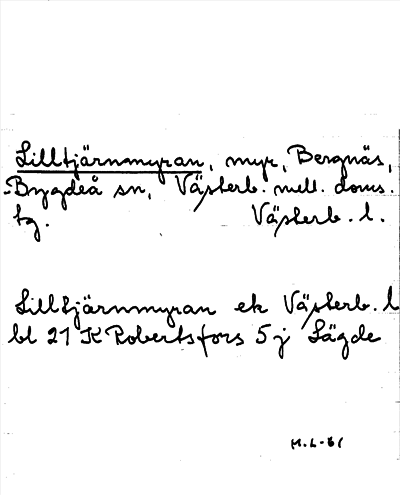 Lilltjärnmyran, myr, Bergnäs,
Bygdeå sn, Västerb. mell. doms.
tg. Västerb. l.
Lilltjärnmyran ek Västerb. l
bl 21 K Robertsfors 5 j Lägde
M.L-61